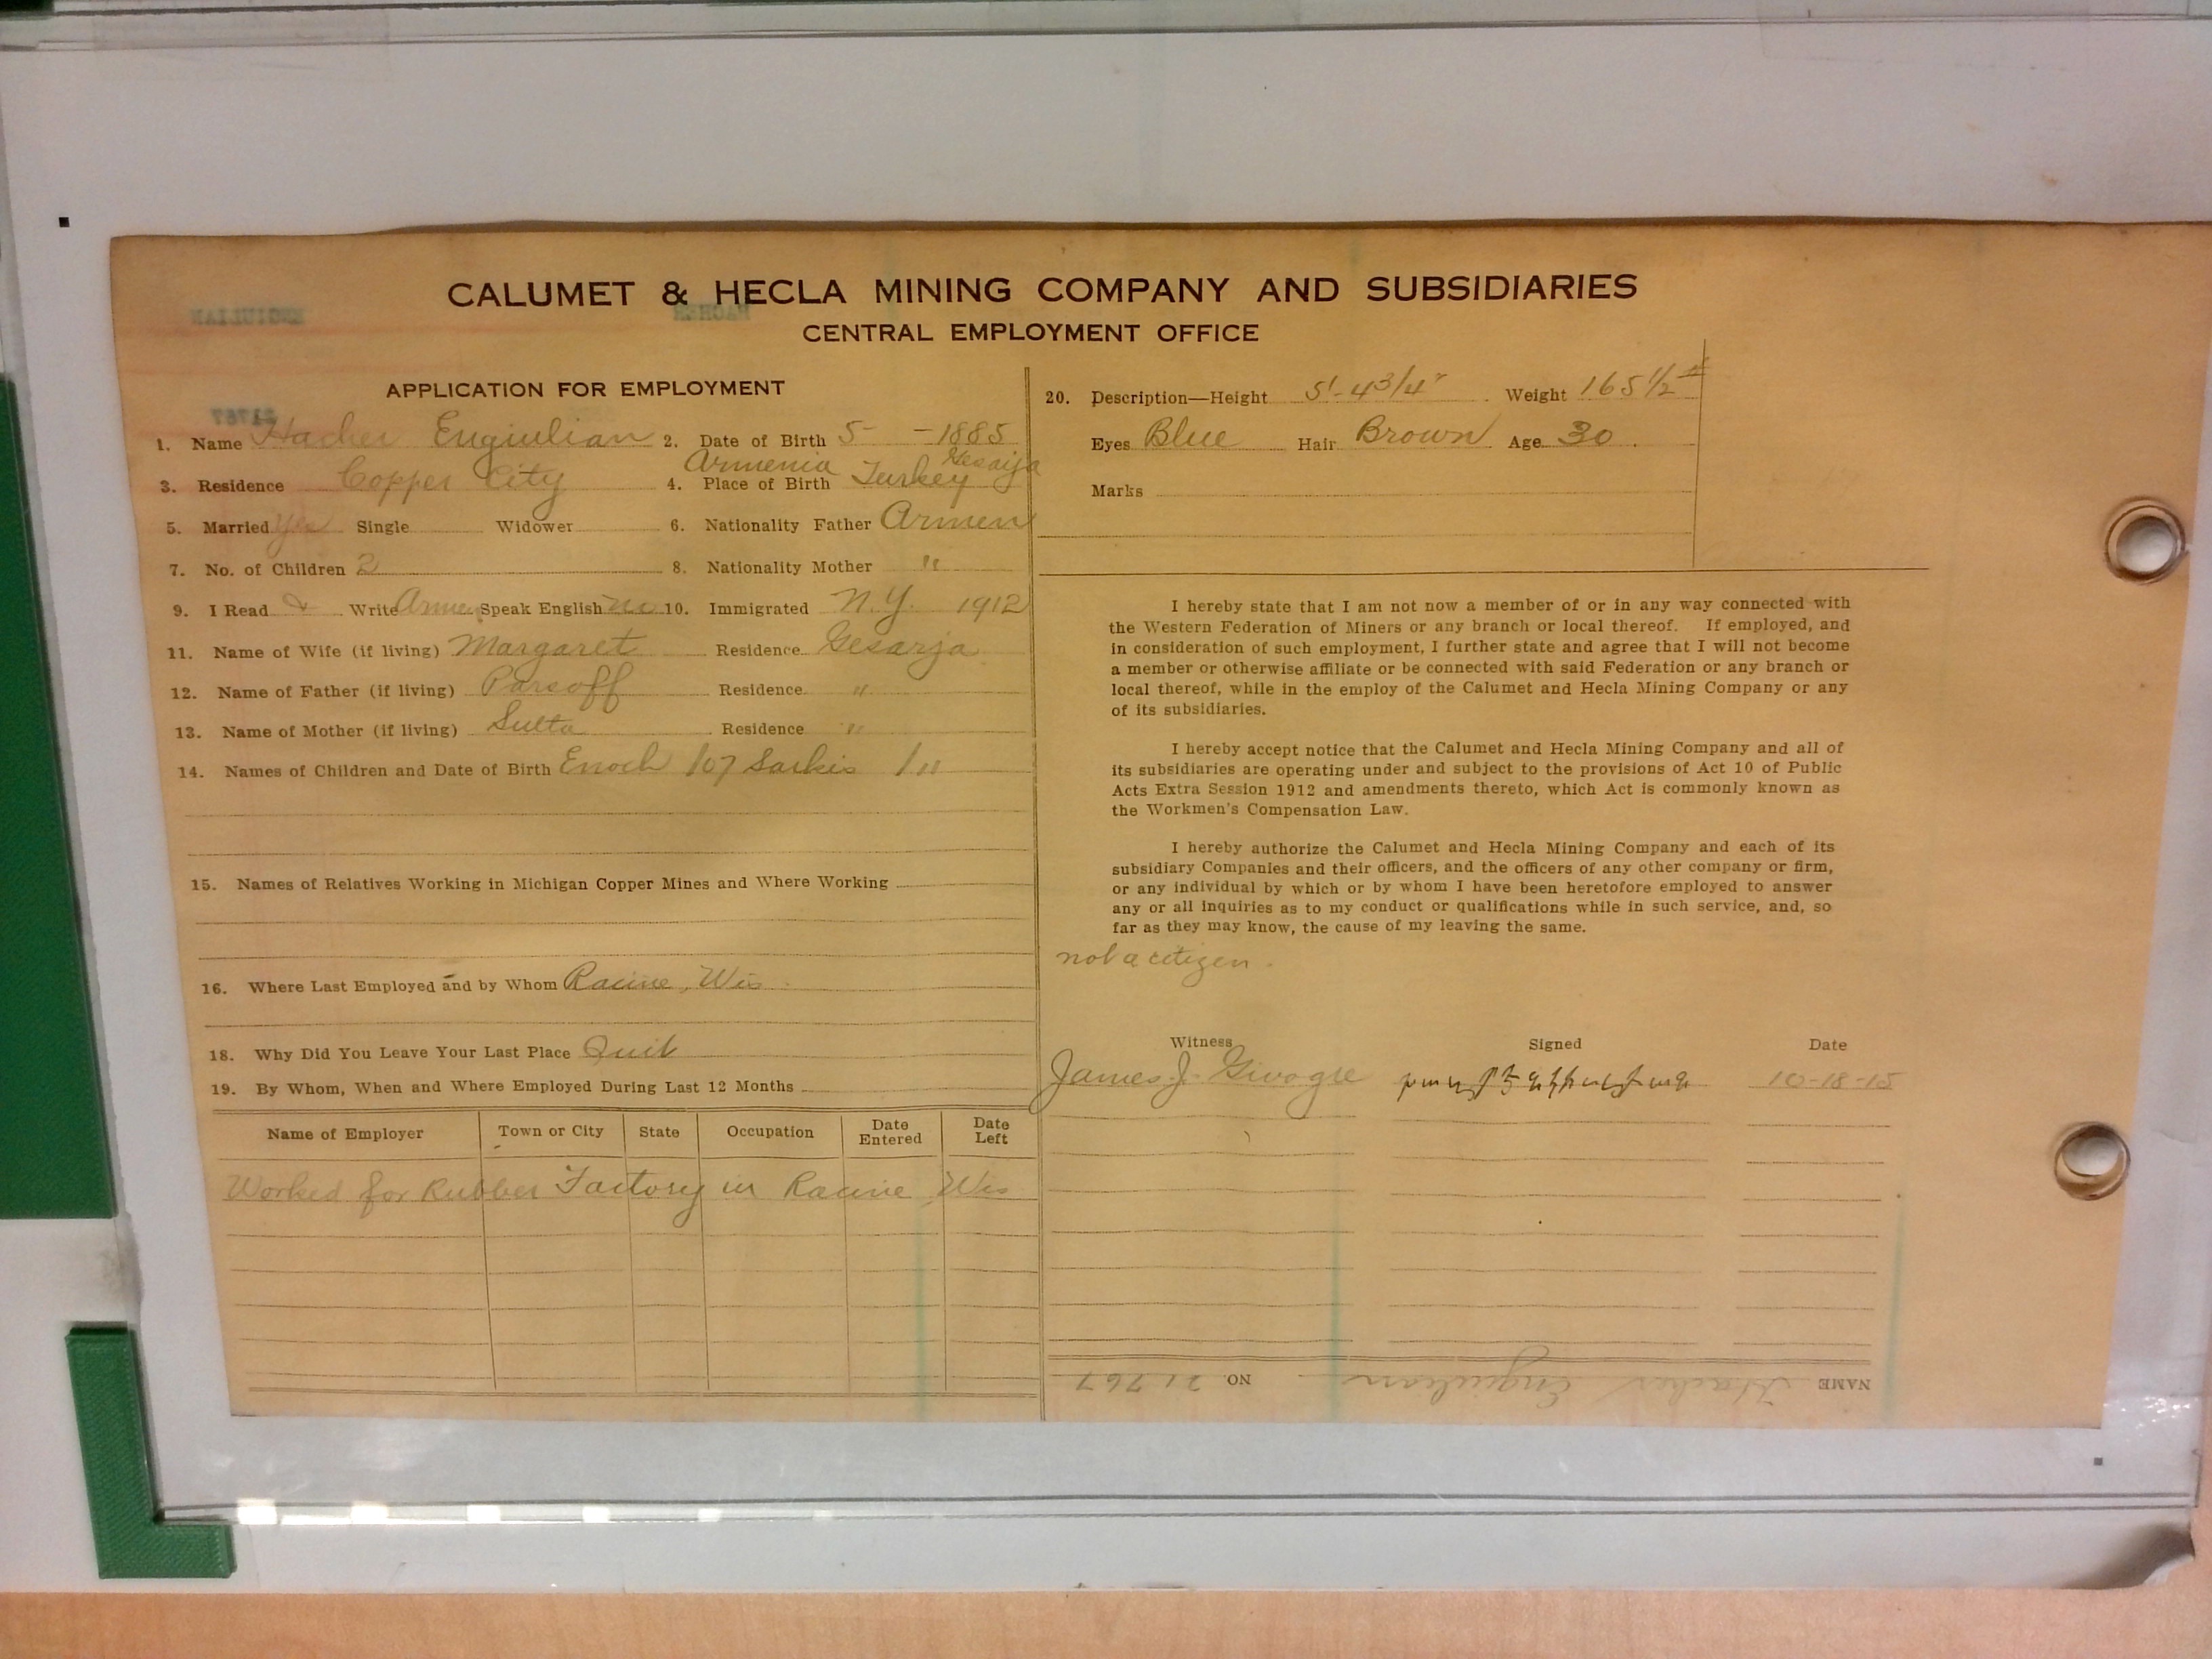 CALUMET & HECLA MINING COMPANY AND SUBSIDIARIES
CENTRAL EMPLOYMENT OFFICE
ENGIULIAN HACHER
21767
APPLICATION FOR EMPLOYMENT
1. Name Hacher Engiulian 2. Date of Birth 5- -1885
3. Residence Copper City 4. Place of Birth Armenia Turkey Gesarja
5. Married Yes Single Widower 6. Nationality Father Armen
7. No. of Children 2 8. Nationality Mother "
9. I Read & Write Armen Speak English no 10. Immigrated N.Y. 1912
11. Name of Wife (if living) Margaret Residence Gesarja
12. Name of Father (if living) Parsoff Residence "
13. Name of Mother (if living) Sulta Residence "
14. Names of Children and Date of Birth Enoch /07 Sarkis /11
15. Names of Relatives Working in Michigan Copper Mines and Where Working
16. Where Last Employed and by Whom Racine, Wis
18. Why Did You Leave Your Last Place Quit
19. By Whom, When and Where Employed During Last 12 Months
Name of Employer Town or City State Occupation Date Entered Date Left
Worked for Rubber Factory in Racine Wis
20. Description—Height 5'-4 3/4" Weight 165 1/2 #
Eyes Blue Hair Brown Age 30.
Marks
I hereby state that I am not now a member of or in any way connected with
the Western Federation of Miners or any branch or local thereof. If employed, and
in consideration of such employment, I further state and agree that I will not become
a member or otherwise affiliate or be connected with said Federation or any branch or
local thereof, while in the employ of the Calumet and Hecla Mining Company or any
of its subsidiaries.
I hereby accept notice that the Calumet and Hecla Mining Company and all of
its subsidiaries are operating under and subject to the provisions of Act 10 of Public
Acts Extra Session 1912 and amendments thereto, which Act is commonly known as
the Workmen's Compensation Law.
I hereby authorize the Calumet and Hecla Mining Company and each of its
subsidiary Companies and their officers, and the officers of any other company or firm,
or any individual by which or by whom I have been heretofore employed to answer
any or all inquiries as to my conduct or qualifications while in such service, and, so
far as they may know, the cause of my leaving the same.
not a citizen.
Witness Signed Date
James J. 10-18-15
NAME Hacher Engiulian NO. 21767